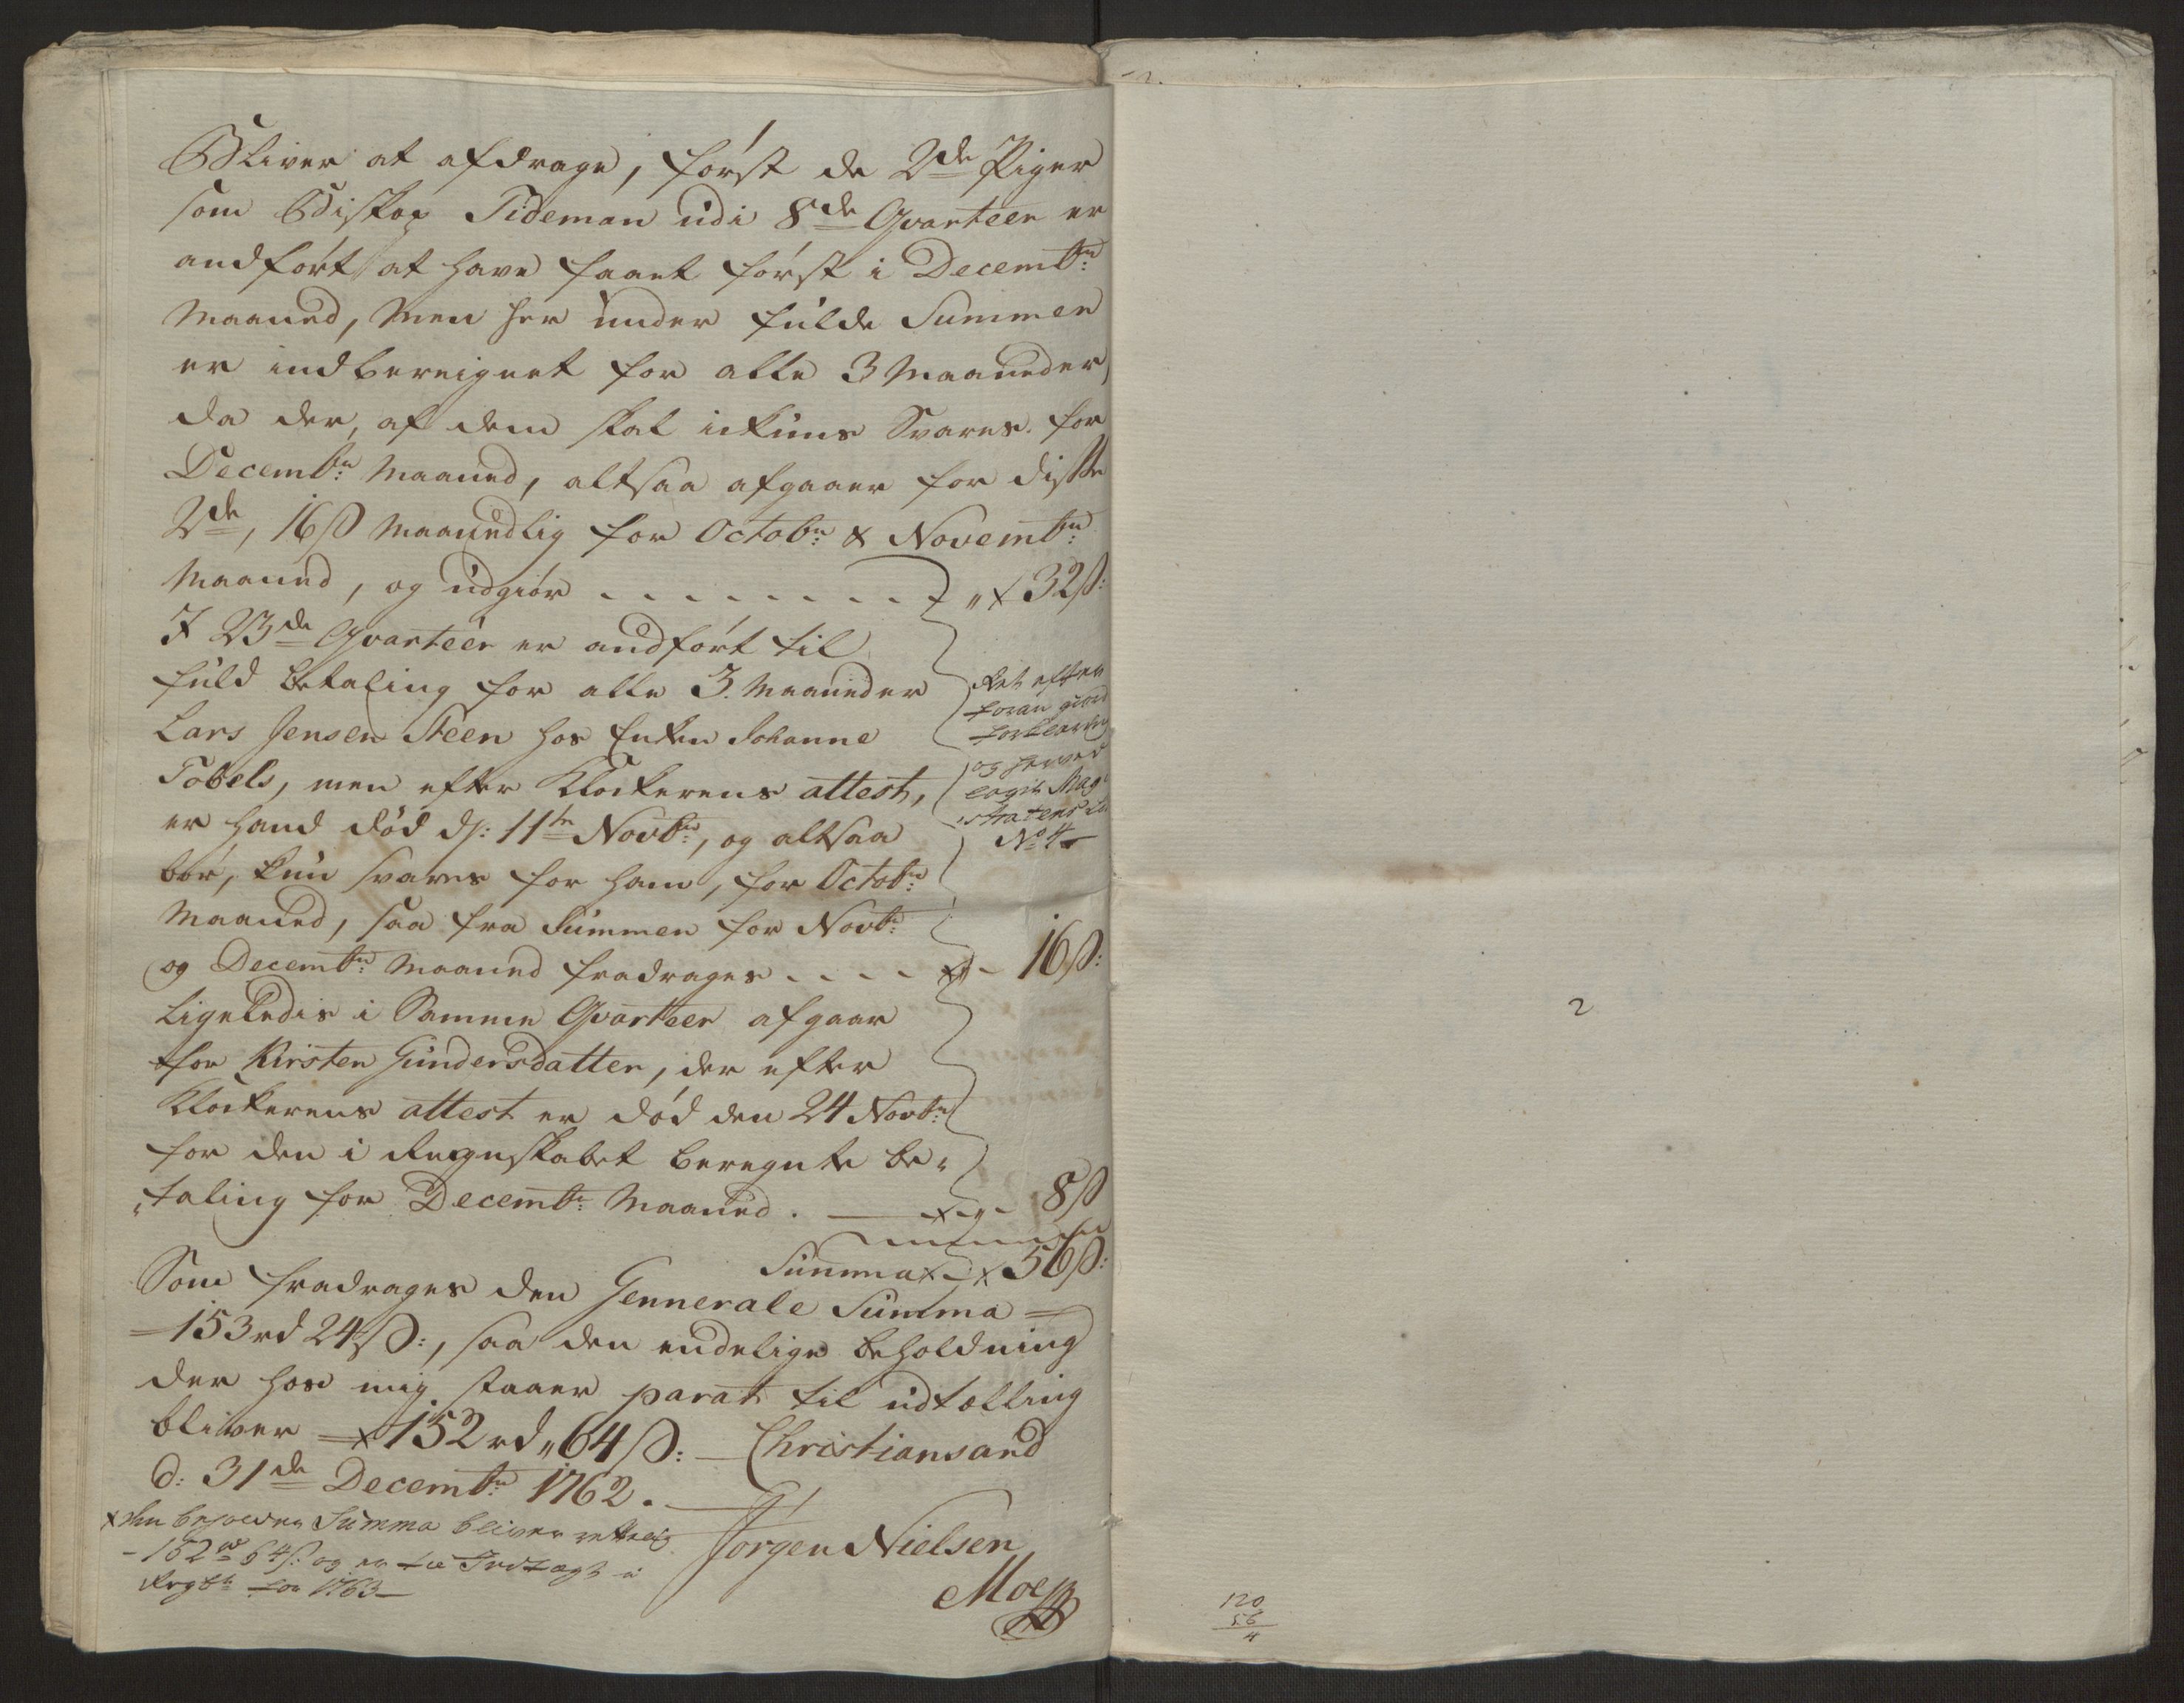 Bliver at afdrage, først de 2de Piger
som Biskop Tideman udi 8de Qvarteer er
andført at have faaet først i Decembr:
Maaned, Men her under fulde Summen
er indbereignet for alle 3 Maaneder,
da der, af dem skal ickuns Svares for
Decembr: Maaned, altsaa afgaaer for disse
2de, 16 ß Maanedlig for Octobr: & Novembr:
Maaned, og udgiør - - - - - - - - „ x 32 ß:
I 23de Qvarteer er andført til
fuld Betaling for alle 3. Maaneder
Lars Jensen Steen hos Enken Johanne
Tobels, men efter Klockerens attest,
er hand død d: 11te Novbr:, og altsaa
bør, kun svares for ham, for Octobr:
Maaned, saa fra Summen for Novbr:
og Decembr: Maaned fradrages - - - - x - 16 ß:
Ret efter
foran giord
forklaring
og herved
lagt Mag-
istratens
No 4
Ligeledis i Samme Qvarteer afgaar
for Kirsten Gundersdatter, der efter
Klockerens attest er død den 24 Novbr:
for den i Regnskabet beregnte be-
taling for Decembr: Maaned. — x - „ - 8 ß
Summa x - x 56 ß:
Som fradrages den Gennerale Summa =
= 153 rd 24 ß:, saa den endelige beholdning
der hos mig staaer parat til udtælling
bliver = x 152 rd „ 64 ß: — Christiansand
d: 31de Decembr: 1762. —
Jørgen Nielsen
Moe
x den beholdne Summa bliver rettelig
- 152 rd 64 ß: og er til Indtægt i
Regsk: for 1763 —
2
120
56
4